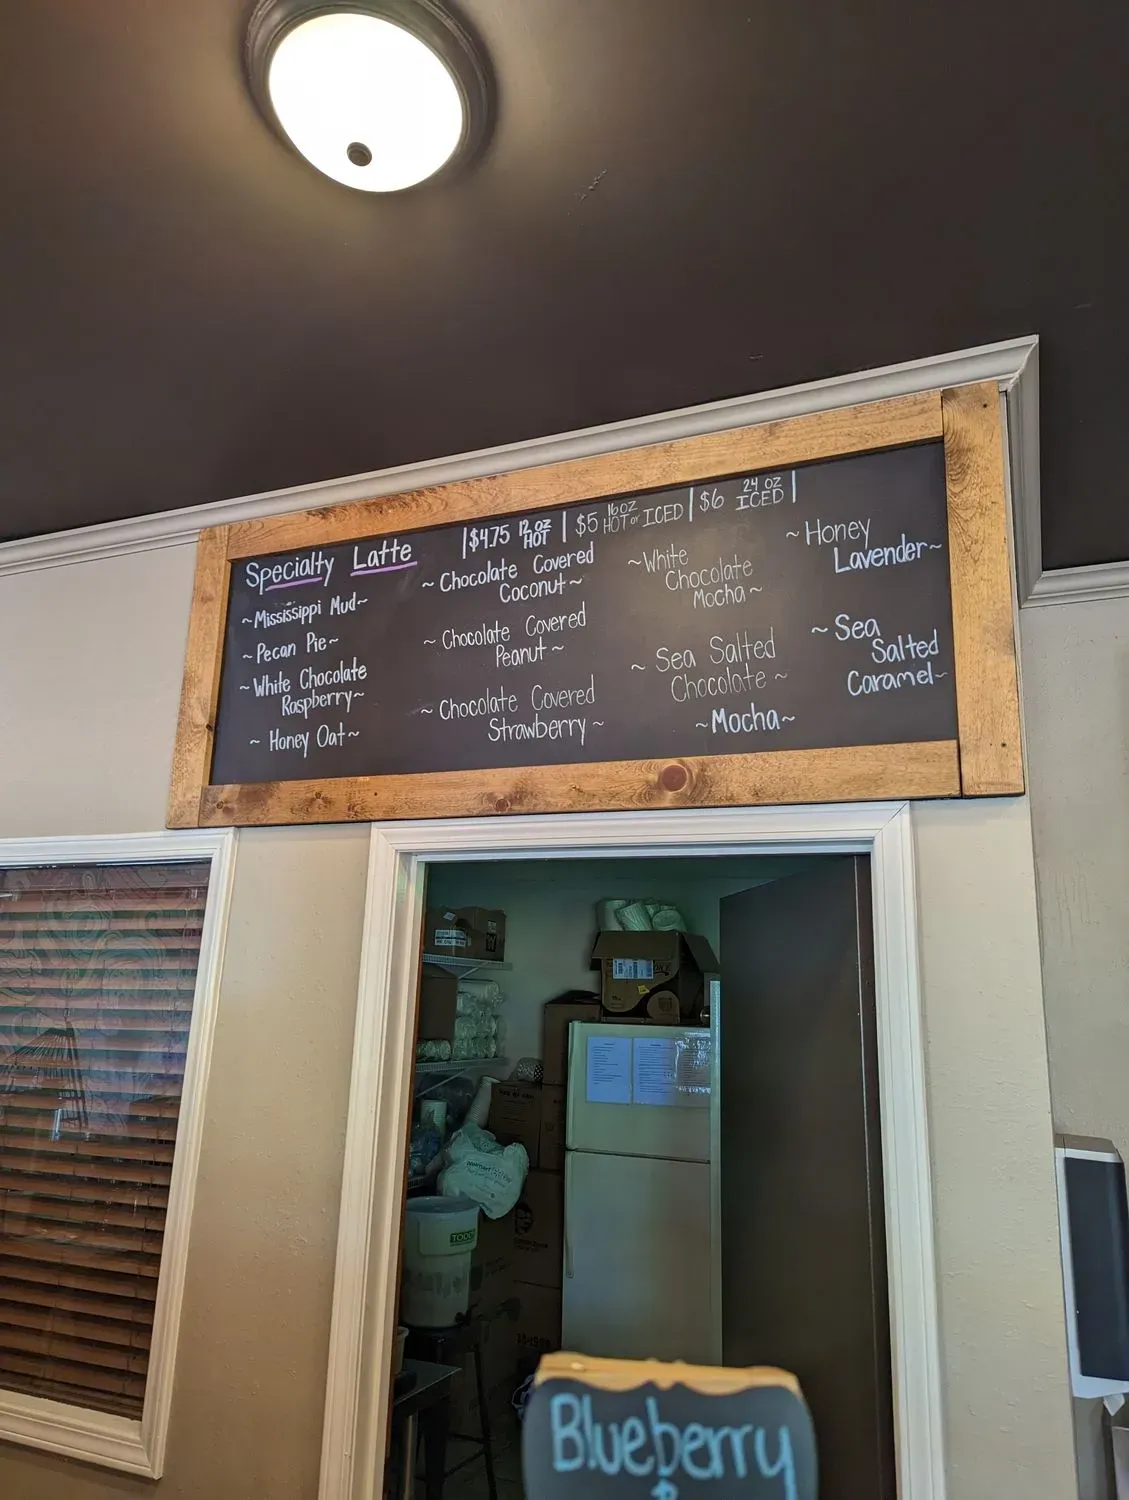 Specialty Latte |$4.75 12 oz HOT | $5 16 oz HOT or ICED | $6 24 oz ICED |
~Mississippi Mud~
~Pecan Pie~
~White Chocolate
Raspberry~
~ Honey Oat~
~ Chocolate Covered
Coconut~
~ Chocolate Covered
Peanut ~
~ Chocolate Covered
Strawberry ~
~White
Chocolate
Mocha~
~ Sea Salted
Chocolate ~
~Mocha~
~Honey
Lavender~
~Sea
Salted
Caramel~
TODDY
Blueberry